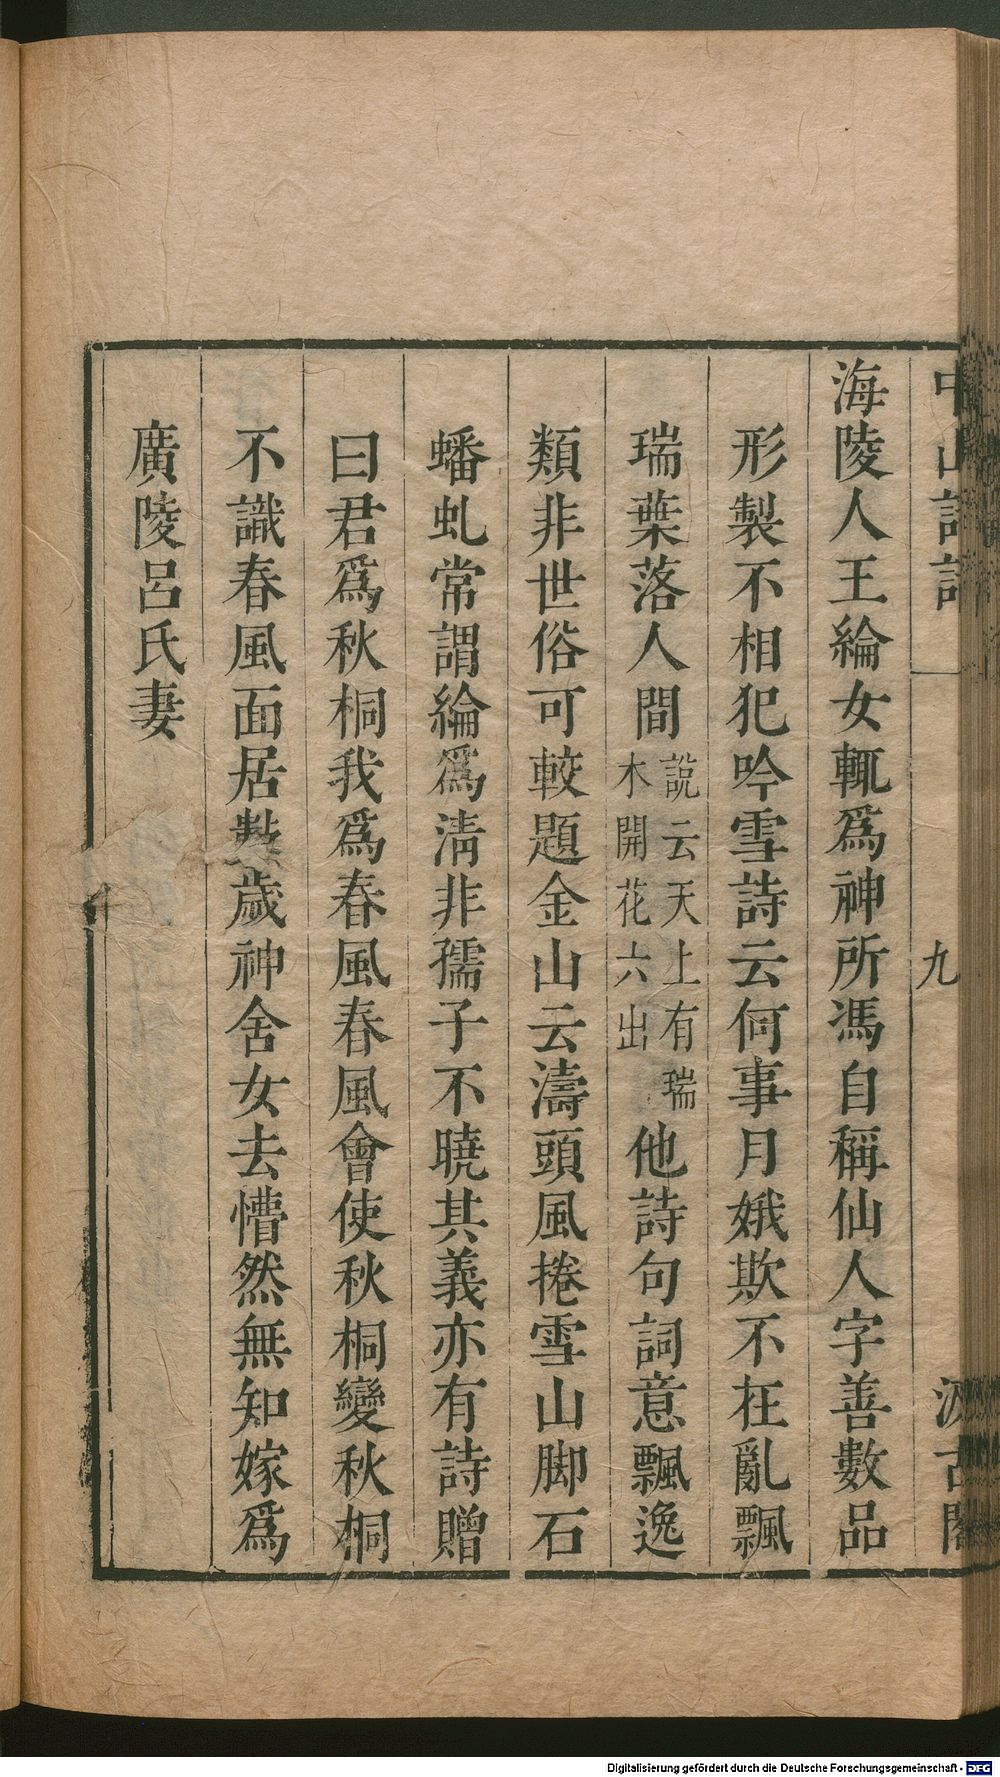 中山詩話
九
汲古閣
海陵人王綸女輒爲神所馮自稱仙人字善數品
形製不相犯吟雪詩云何事月娥欺不在亂飄
瑞葉落人間說云天上有瑞木開花六出他詩句詞意飄逸
類非世俗可較題金山云濤頭風捲雪山脚石
蟠虬常謂綸爲淸非孺子不曉其義亦有詩贈
曰君爲秋桐我爲春風春風會使秋桐變秋桐
不識春風面居數歲神舍女去懵然無知嫁爲
廣陵呂氏妻
Digitalisierung gefördert durch die Deutsche Forschungsgemeinschaft - DFG